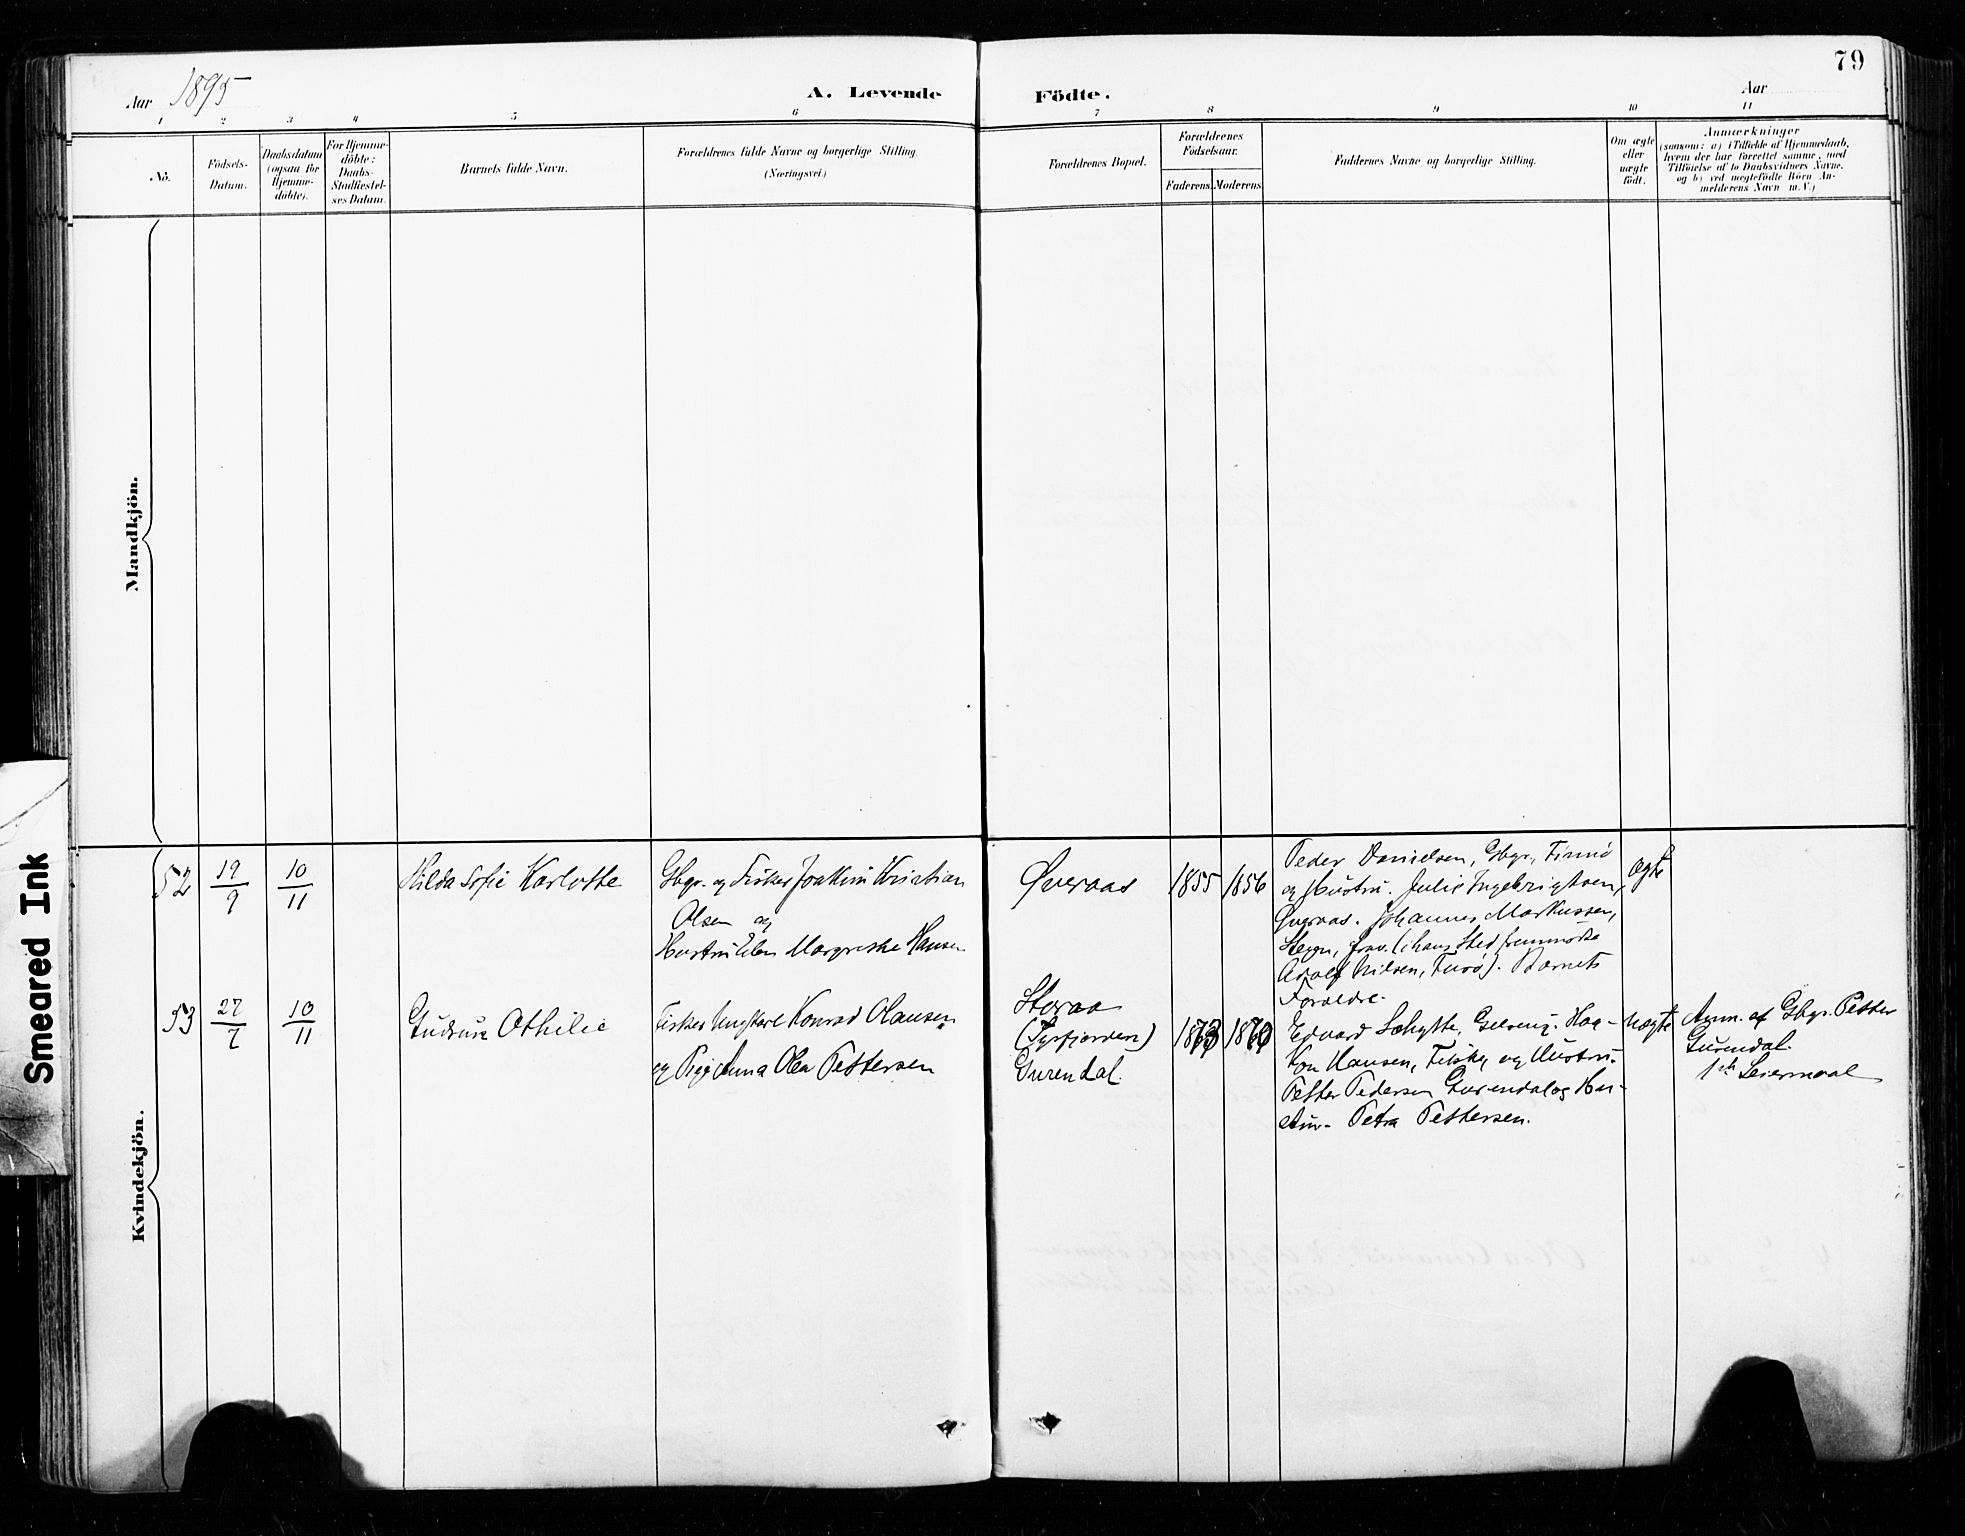 79
Aar 1895
A. Levende Födte.
Aar
1 2 3 4 5 6 7 8 9 10 11
No.
Födsels-
Datum.
Daabsdatum
(ogsaa for
Hjemme-
döbte).
For Hjemme-
döbte:
Daabs-
Stadfæstel-
ses Datum.
Barnets fulde Navn.
Forældrenes fulde Navne og borgerlige Stilling.
(Næringsvei.)
Forældrenes Bopæl.
Forældrenes
Födselsaar.
Faderens. Moderens.
Faddernes Navne og borgerlige Stilling.
Om ægte
eller
uægte
födt.
Anmærkninger
(saasom: a) i Tilfælde af Hjemmedaab,
hvem der har forrettet samme, med
Tilföielse af to Daabsvidners Navne,
og b) ved uægtefödte Börn An-
melderens Navn m.V.)
Mandkjön.
Kvindekjön.
Smeared Ink
52
19/9
10/11
Hilda Sofie Karlotte
Gbgr. og Fisker Joakim Kristian
Olsen og
Hustru Elen Margreske Hansen
Øveraas
1855
1856
Peder Danielsen, Gbgr., Finnö
og Hustru. Julie Ingebrigtsen,
Øveraas. Johannes Markussen,
Stegn, frav. (i hans Sted fremmødte
Adolf Nilsen, Furö). Barnets
Forældre.
Ægte
53
27/7
10/11
Gudrun Othilie
Fisker Ungkarl Konrad Olausen
og Pige Anna Olea Pettersen
Storaa
(Tysfjorden)
Gurendal.
1873
1870
Edvard Sæhytte, Helveng. Haa-
kon Hansen, Fiske, og Hustru.
Petter Pedersen Gurendal og Hu-
stru. Petra Pettersen.
Uægte
Anm. af Gbgr. Petter
Gurendal.
1ste Leiermaal